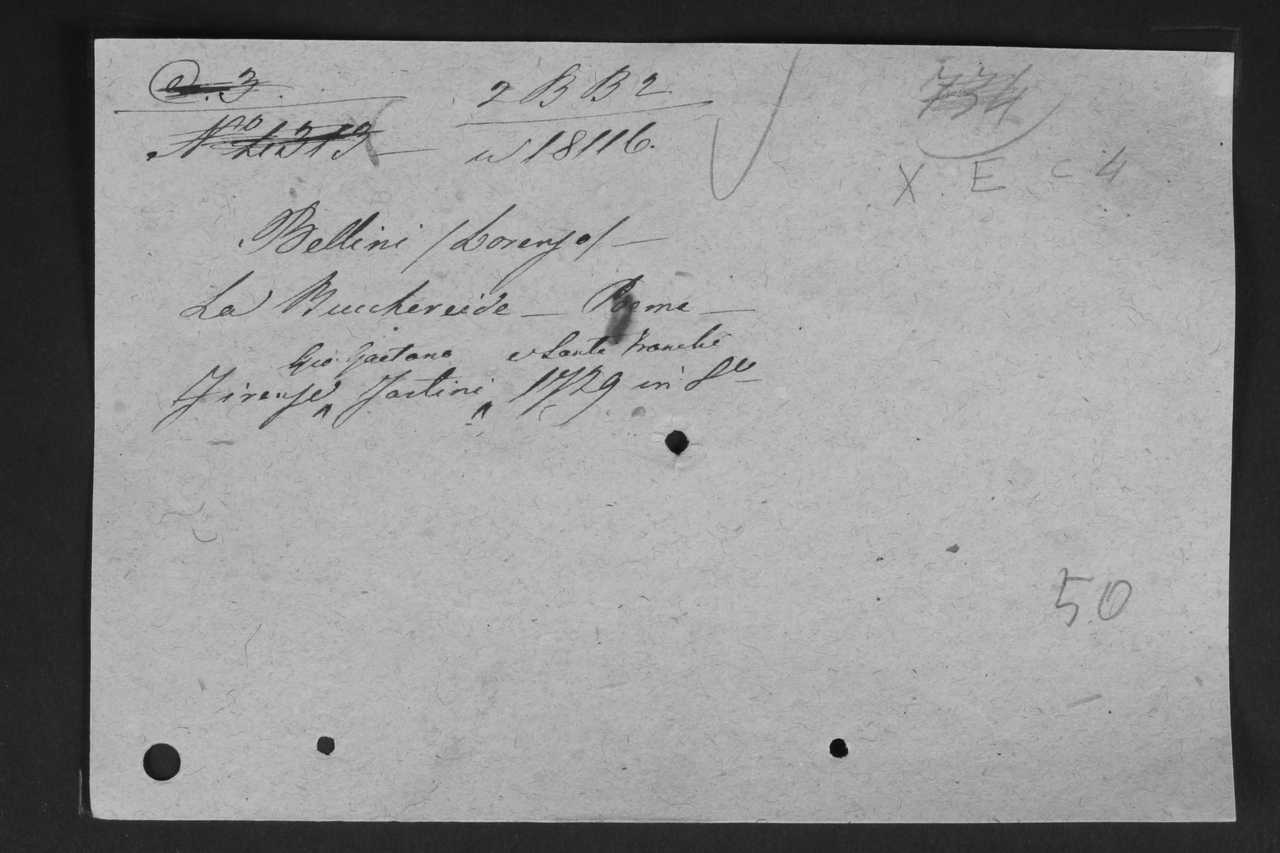 C. 3. 2 B B 2 734
No 21313 w 18116.
X E C 4
Bellini /Lorenzo/ —
La Bucchereide — Poema —
Gio. Gaetano e Santi Franchi
Firenze Tartini 1729 in 8º
50